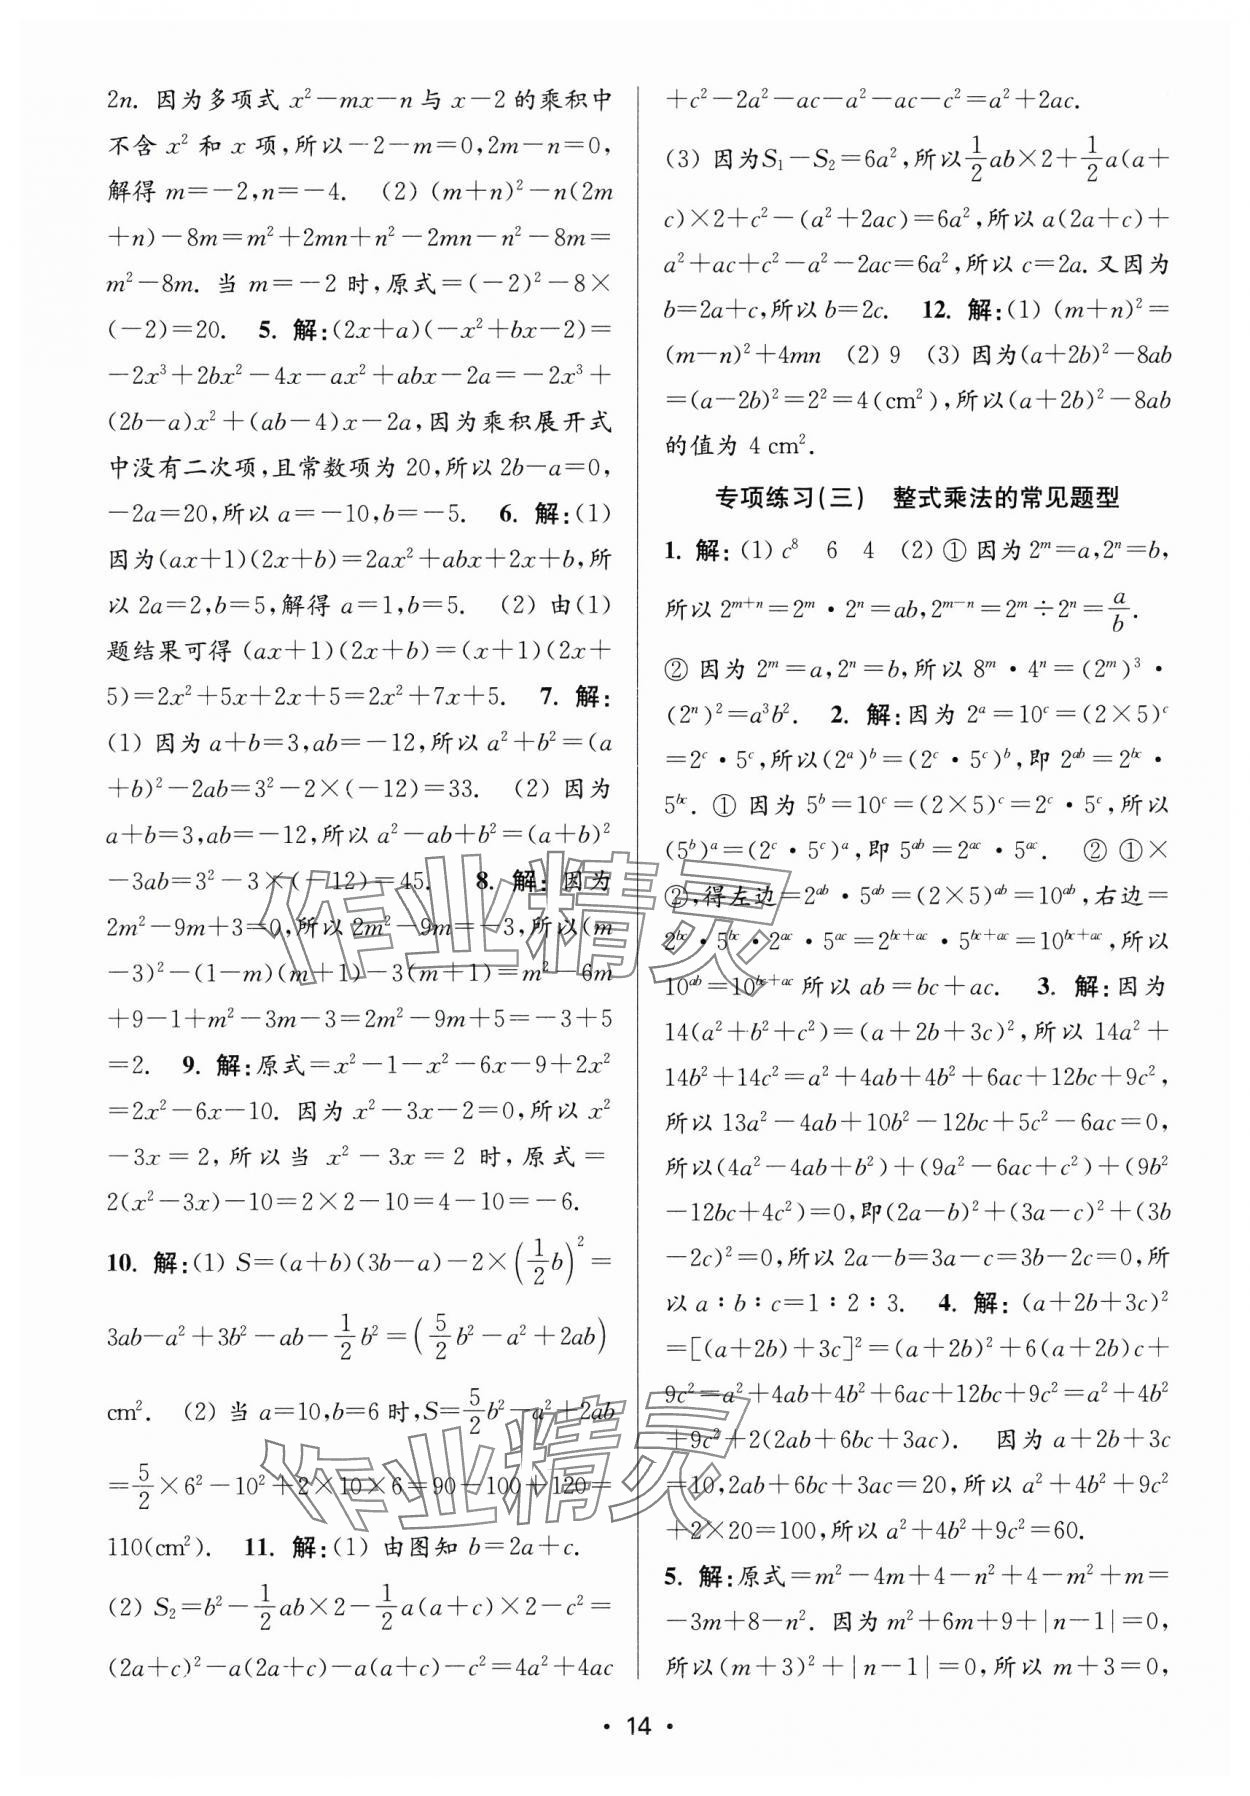 2n. 因为多项式 x²－mx－n 与 x－2 的乘积中
不含 x² 和 x 项,所以－2－m＝0,2m－n＝0,
解得 m＝－2,n＝－4. (2) (m＋n)²－n(2m
＋n)－8m＝m²＋2mn＋n²－2mn－n²－8m＝
m²－8m. 当 m＝－2 时,原式＝(－2)²－8×
(－2)＝20. 5. 解:(2x＋a)(－x²＋bx－2)＝
－2x³＋2bx²－4x－ax²＋abx－2a＝－2x³＋
(2b－a)x²＋(ab－4)x－2a,因为乘积展开式
中没有二次项,且常数项为 20,所以 2b－a＝0,
－2a＝20,所以 a＝－10,b＝－5. 6. 解:(1)
因为(ax＋1)(2x＋b)＝2ax²＋abx＋2x＋b,所
以 2a＝2,b＝5,解得 a＝1,b＝5. (2) 由(1)
题结果可得 (ax＋1)(2x＋b)＝(x＋1)(2x＋
5)＝2x²＋5x＋2x＋5＝2x²＋7x＋5. 7. 解:
(1) 因为 a＋b＝3,ab＝－12,所以 a²＋b²＝(a
＋b)²－2ab＝3²－2×(－12)＝33. (2) 因为
a＋b＝3,ab＝－12,所以 a²－ab＋b²＝(a＋b)²
－3ab＝3²－3×(－12)＝45. 8. 解:因为
2m²－9m＋3＝0,所以 2m²－9m＝－3,所以(m
－3)²－(1－m)(m＋1)－3(m＋1)＝m²－6m
＋9－1＋m²－3m－3＝2m²－9m＋5＝－3＋5
＝2. 9. 解:原式＝x²－1－x²－6x－9＋2x²
＝2x²－6x－10. 因为 x²－3x－2＝0,所以 x²
－3x＝2,所以当 x²－3x＝2 时,原式＝
2(x²－3x)－10＝2×2－10＝4－10＝－6.
10. 解:(1) S＝(a＋b)(3b－a)－2×(1/2 b)²＝
3ab－a²＋3b²－ab－1/2 b²＝(5/2 b²－a²＋2ab)
cm². (2) 当 a＝10,b＝6 时,S＝5/2 b²－a²＋2ab
＝5/2×6²－10²＋2×10×6＝90－100＋120＝
110(cm²). 11. 解:(1) 由图知 b＝2a＋c.
(2) S₂＝b²－1/2 ab×2－1/2 a(a＋c)×2－c²＝
(2a＋c)²－a(2a＋c)－a(a＋c)－c²＝4a²＋4ac
＋c²－2a²－ac－a²－ac－c²＝a²＋2ac.
(3) 因为S₁－S₂＝6a²,所以1/2 ab×2＋1/2 a(a＋
c)×2＋c²－(a²＋2ac)＝6a²,所以 a(2a＋c)＋
a²＋ac＋c²－a²－2ac＝6a²,所以 c＝2a. 又因为
b＝2a＋c,所以 b＝2c. 12. 解:(1) (m＋n)²＝
(m－n)²＋4mn (2) 9 (3) 因为(a＋2b)²－8ab
＝(a－2b)²＝2²＝4(cm²),所以(a＋2b)²－8ab
的值为 4 cm².
专项练习(三) 整式乘法的常见题型
1. 解:(1) c⁸ 6 4 (2) ① 因为 2ᵐ＝a,2ⁿ＝b,
所以 2ᵐ⁺ⁿ＝2ᵐ·2ⁿ＝ab,2ᵐ⁻ⁿ＝2ᵐ÷2ⁿ＝a/b.
② 因为 2ᵐ＝a,2ⁿ＝b,所以 8ᵐ·4ⁿ＝(2ᵐ)³·
(2ⁿ)²＝a³b². 2. 解:因为 2ᵃ＝10ᶜ＝(2×5)ᶜ
＝2ᶜ·5ᶜ,所以(2ᵃ)ᵇ＝(2ᶜ·5ᶜ)ᵇ,即 2ᵃᵇ＝2ᵇᶜ·
5ᵇᶜ. ① 因为 5ᵇ＝10ᶜ＝(2×5)ᶜ＝2ᶜ·5ᶜ,所以
(5ᵇ)ᵃ＝(2ᶜ·5ᶜ)ᵃ,即 5ᵃᵇ＝2ᵃᶜ·5ᵃᶜ. ② ①×
②,得左边＝2ᵃᵇ·5ᵃᵇ＝(2×5)ᵃᵇ＝10ᵃᵇ,右边＝
2ᵇᶜ·5ᵇᶜ·2ᵃᶜ·5ᵃᶜ＝2ᵇᶜ⁺ᵃᶜ·5ᵇᶜ⁺ᵃᶜ＝10ᵇᶜ⁺ᵃᶜ,所以
10ᵃᵇ＝10ᵇᶜ⁺ᵃᶜ所以 ab＝bc＋ac. 3. 解:因为
14(a²＋b²＋c²)＝(a＋2b＋3c)²,所以 14a²＋
14b²＋14c²＝a²＋4ab＋4b²＋6ac＋12bc＋9c²,
所以 13a²－4ab＋10b²－12bc＋5c²－6ac＝0,
所以(4a²－4ab＋b²)＋(9a²－6ac＋c²)＋(9b²
－12bc＋4c²)＝0,即(2a－b)²＋(3a－c)²＋(3b
－2c)²＝0,所以 2a－b＝3a－c＝3b－2c＝0,所
以 a∶b∶c＝1∶2∶3. 4. 解:(a＋2b＋3c)²
＝[(a＋2b)＋3c]²＝(a＋2b)²＋6(a＋2b)c＋
9c²＝a²＋4ab＋4b²＋6ac＋12bc＋9c²＝a²＋4b²
＋9c²＋2(2ab＋6bc＋3ac). 因为 a＋2b＋3c
＝10,2ab＋6bc＋3ac＝20,所以 a²＋4b²＋9c²
＋2×20＝100,所以 a²＋4b²＋9c²＝60.
5. 解:原式＝m²－4m＋4－n²＋4－m²＋m＝
－3m＋8－n². 因为 m²＋6m＋9＋|n－1|＝0,
所以(m＋3)²＋|n－1|＝0,所以 m＋3＝0,
· 14 ·
作业精灵
作业精灵